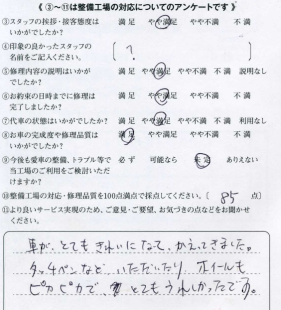 《 ②～⑪は整備工場の対応についてのアンケートです 》
③スタッフの挨拶・接客態度は 満 足 やや満足 やや不満 不 満
いかがでしたか?
④印象の良かったスタッフの 〔 ? 〕
名前をご記入ください。
⑤修理内容の説明はいかが 満 足 やや満足 やや不満 不 満 説明なし
でしたか?
⑥お約束の日時までに修理は 満 足 やや満足 やや不満 不 満
完了しましたか?
⑦代車の状態はいかがでしたか? 満 足 やや満足 やや不満 不 満 利用なし
⑧お車の完成度や修理品質は 満 足 やや満足 やや不満 不 満
いかがでしたか?
⑨今後も愛車の整備、トラブル等で 必 ず 可能なら 未 定 ありえない
当工場のご利用をご検討いただ
けますか?
⑩整備工場の対応・修理品質を100点満点で採点してください。〔 85 点〕
⑪より良いサービス実現のため、ご意見・ご要望、お気づきの点などをお聞かせ
ください。
車が、とても きれいに なって、かえってきました。
タッチペンなど いただいたり ホイールも
ピカピカで、とても うれしかったです。